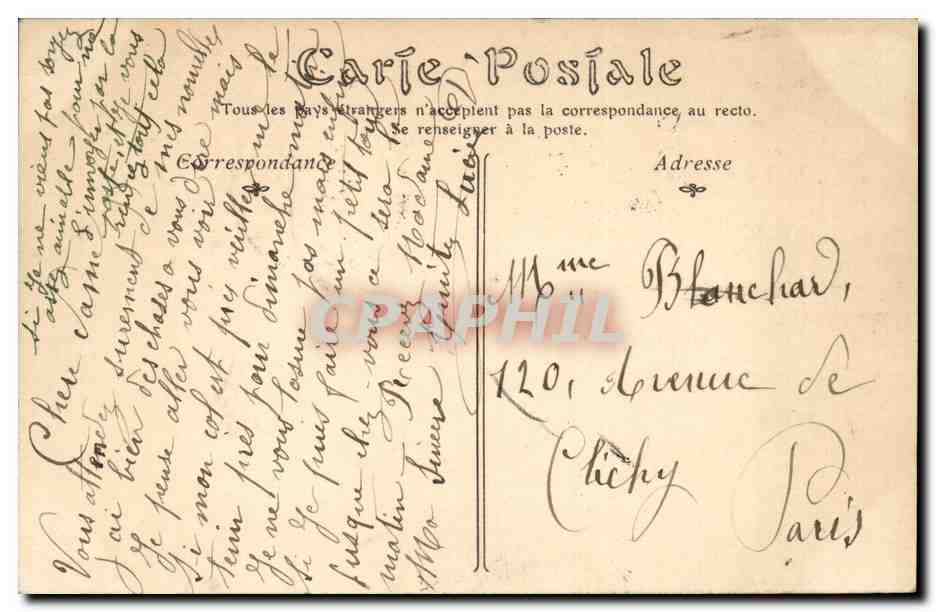 Carte Postale
Tous les pays étrangers n'acceptent pas la correspondance au recto.
Se renseigner à la poste.
Correspondance
Adresse
Mme Blanchard,
120, Avenue de
Clichy
Paris
Chère Madame
Vous attendez surement de mes nouvelles
j'ai bien des choses à vous dire mais
Je pense aller vous voir
si mon col est pres veuillez me le
tenir pres pour dimanche matin
Je ne vous l'assure pas mais enfin
si Je puis faire un petit tour
jusque chez-vous ce sera le
matin Recevez Madame
Ma Sincere Amitié Lucie
si Je ne viens pas soyez
assez aimable pour me
l'envoyer par la
poste et je vous
tout cela
CPAPHIL